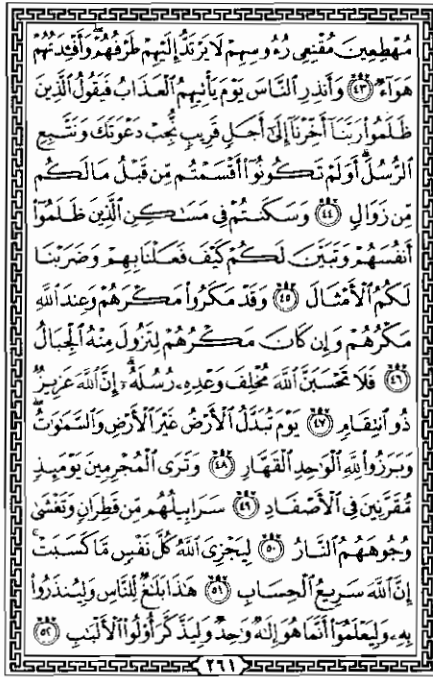 مُهْطِعِينَ مُقْنِعِى رُءُوسِهِمْ لَا يَرْتَدُّ إِلَيْهِمْ طَرْفُهُمْ ۖ وَأَفْـِٔدَتُهُمْ
هَوَآءٌ ﴿٤٣﴾ وَأَنذِرِ النَّاسَ يَوْمَ يَأْتِيهِمُ الْعَذَابُ فَيَقُولُ الَّذِينَ
ظَلَمُوا۟ رَبَّنَآ أَخِّرْنَآ إِلَىٰٓ أَجَلٍ قَرِيبٍ نُّجِبْ دَعْوَتَكَ وَنَتَّبِعِ
الرُّسُلَ ۗ أَوَلَمْ تَكُونُوٓا۟ أَقْسَمْتُم مِّن قَبْلُ مَا لَكُم
مِّن زَوَالٍ ﴿٤٤﴾ وَسَكَنتُمْ فِى مَسَٰكِنِ الَّذِينَ ظَلَمُوٓا۟
أَنفُسَهُمْ وَتَبَيَّنَ لَكُمْ كَيْفَ فَعَلْنَا بِهِمْ وَضَرَبْنَا
لَكُمُ الْأَمْثَالَ ﴿٤٥﴾ وَقَدْ مَكَرُوا۟ مَكْرَهُمْ وَعِندَ اللَّهِ
مَكْرُهُمْ وَإِن كَانَ مَكْرُهُمْ لِتَزُولَ مِنْهُ الْجِبَالُ
﴿٤٦﴾ فَلَا تَحْسَبَنَّ اللَّهَ مُخْلِفَ وَعْدِهِۦ رُسُلَهُۥٓ ۗ إِنَّ اللَّهَ عَزِيزٌ
ذُو انتِقَامٍ ﴿٤٧﴾ يَوْمَ تُبَدَّلُ الْأَرْضُ غَيْرَ الْأَرْضِ وَالسَّمَٰوَٰتُ ۖ
وَبَرَزُوا۟ لِلَّهِ الْوَٰحِدِ الْقَهَّارِ ﴿٤٨﴾ وَتَرَى الْمُجْرِمِينَ يَوْمَئِذٍ
مُّقَرَّنِينَ فِى الْأَصْفَادِ ﴿٤٩﴾ سَرَابِيلُهُم مِّن قَطِرَانٍ وَتَغْشَىٰ
وُجُوهَهُمُ النَّارُ ﴿٥٠﴾ لِيَجْزِىَ اللَّهُ كُلَّ نَفْسٍ مَّا كَسَبَتْ ۚ
إِنَّ اللَّهَ سَرِيعُ الْحِسَابِ ﴿٥١﴾ هَٰذَا بَلَٰغٌ لِّلنَّاسِ وَلِيُنذَرُوا۟
بِهِۦ وَلِيَعْلَمُوٓا۟ أَنَّمَا هُوَ إِلَٰهٌ وَٰحِدٌ وَلِيَذَّكَّرَ أُو۟لُوا۟ الْأَلْبَٰبِ ﴿٥٢﴾
٢٦١